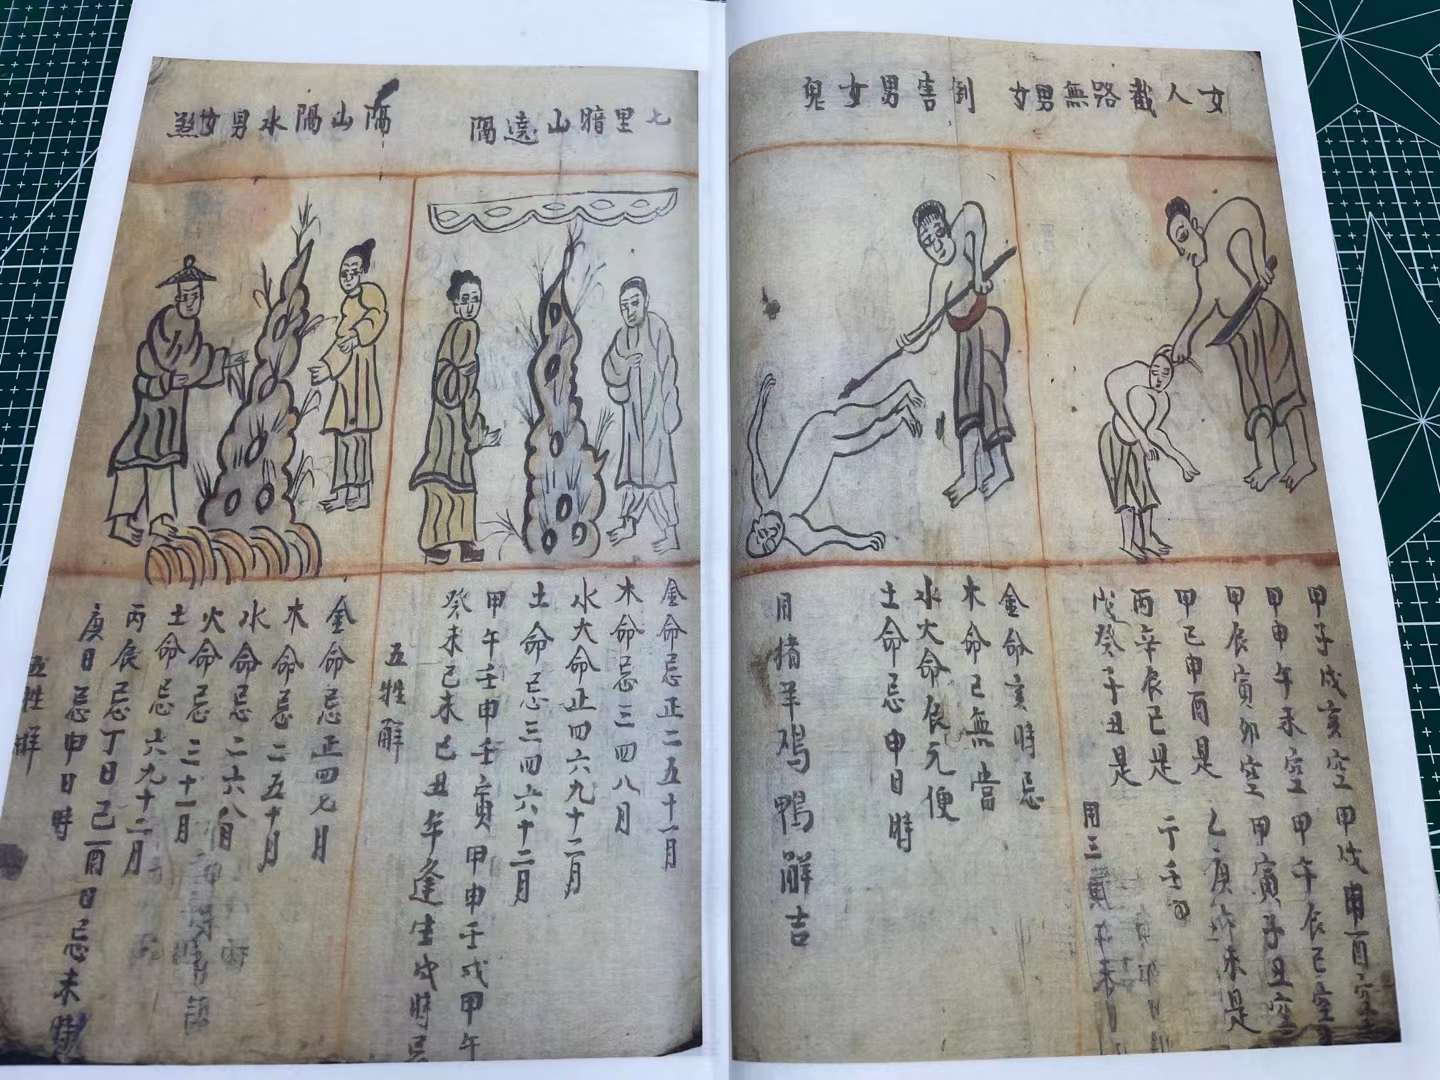 女人截路無男女
甲子戌亥空甲戌申酉空
甲申午未空甲午辰巳空
甲辰寅卯空甲寅子丑空
甲己申酉是乙庚午未是
丙辛辰巳是丁壬
戊癸子丑是
用三
倒害男女鬼
金命亥時忌
木命己無當
水火命辰元便
土命忌申日時
用猪羊鸡鸭解吉
七里暗山遠隔
金命忌正二五十一月
木命忌三四八月
水火命止四六九十二月
土命忌三四六十二月
甲午壬申壬寅甲申壬戌甲午
癸未己未己丑年逢生戌時忌
五牲解
隔山隔水男女煞
金命忌正四七月
木命忌二五十月
水命忌二六八月
火命忌三十一月
土命忌六九十二月
丙辰忌丁日己酉日忌未時
庚日忌申日時
五牲解